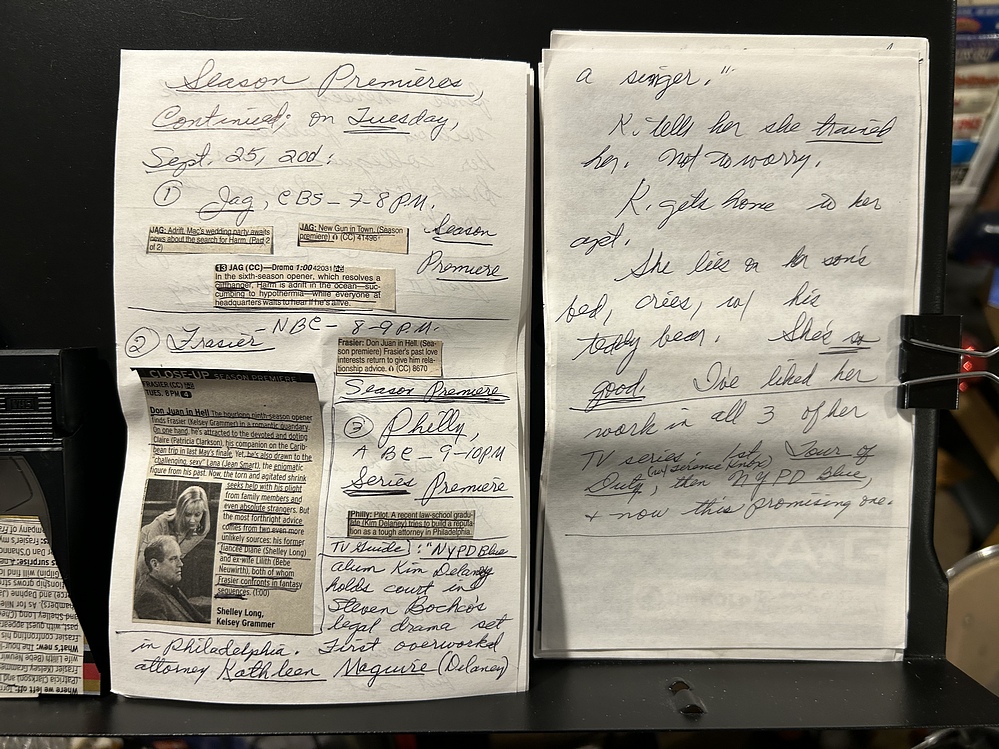 Season Premieres,
Continued; on Tuesday,
Sept. 25, 2001:
① Jag, CBS – 7-8 P.M.
JAG: Adrift. Mac's wedding party awaits
news about the search for Harm. (Part 2
of 2)
JAG: New Gun in Town. (Season
premiere) (CC) 41496
Season
Premiere
13 JAG (CC)—Drama 1:00 42031
In the sixth-season opener, which resolves a
cliffhanger, Harm is adrift in the ocean—suc-
cumbing to hypothermia—while everyone at
headquarters waits to hear if he's alive.
② Frasier – NBC – 8-9 P.M.
Frasier: Don Juan in Hell. (Sea-
son premiere) Frasier's past love
interests return to give him rela-
tionship advice. (CC) 8670
Season Premiere
CLOSE-UP SEASON PREMIERE
FRASIER (CC)
TUES. 8 PM 4
Don Juan in Hell The hourlong ninth-season opener
finds Frasier (Kelsey Grammer) in a romantic quandary.
On one hand, he's attracted to the devoted and doting
Claire (Patricia Clarkson), his companion on the Carib-
bean trip in last May's finale. Yet, he's also drawn to the
"challenging, sexy" Lana (Jean Smart), the enigmatic
figure from his past. Now, the torn and agitated shrink
seeks help with his plight
from family members and
even absolute strangers. But
the most forthright advice
comes from two even more
unlikely sources: his former
fiancée Diane (Shelley Long)
and ex-wife Lilith (Bebe
Neuwirth), both of whom
Frasier confronts in fantasy
sequences. (1:00)
Shelley Long,
Kelsey Grammer
③ Philly,
ABC – 9-10 PM
Series Premiere
Philly: Pilot. A recent law-school gradu-
ate (Kim Delaney) tries to build a reputa-
tion as a tough attorney in Philadelphia.
TV Guide: "NYPD Blue
alum Kim Delaney
holds court in
Steven Bochco's
legal drama set
in Philadelphia. First overworked
attorney Kathleen Maguire (Delaney)
a singer."
K. tells her she trained
her. Not to worry.
K. gets home to her
apt.
She lies on her sons
bed, cries, w/ his
teddy bear. She's so
good. I've liked her
work in all 3 of her
TV series: 1st, Tour of
Duty, (w/ Terence Knox) then NYPD Blue,
+ now this promising one.